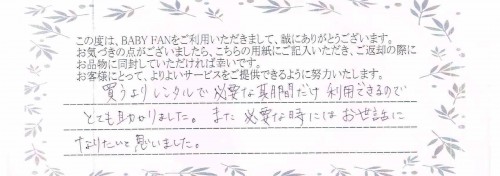 この度は、BABY FANをご利用いただきまして、誠にありがとうございます。
お気づきの点がございましたら、こちらの用紙にご記入いただき、ご返却の際に
お品物に同封していただければ幸いです。
お客様にとって、よりよいサービスをご提供できるように努力いたします。
買うよりレンタルで必要な期間だけ利用できるので
とても助かりました。また必要な時にはお世話に
なりたいと思いました。